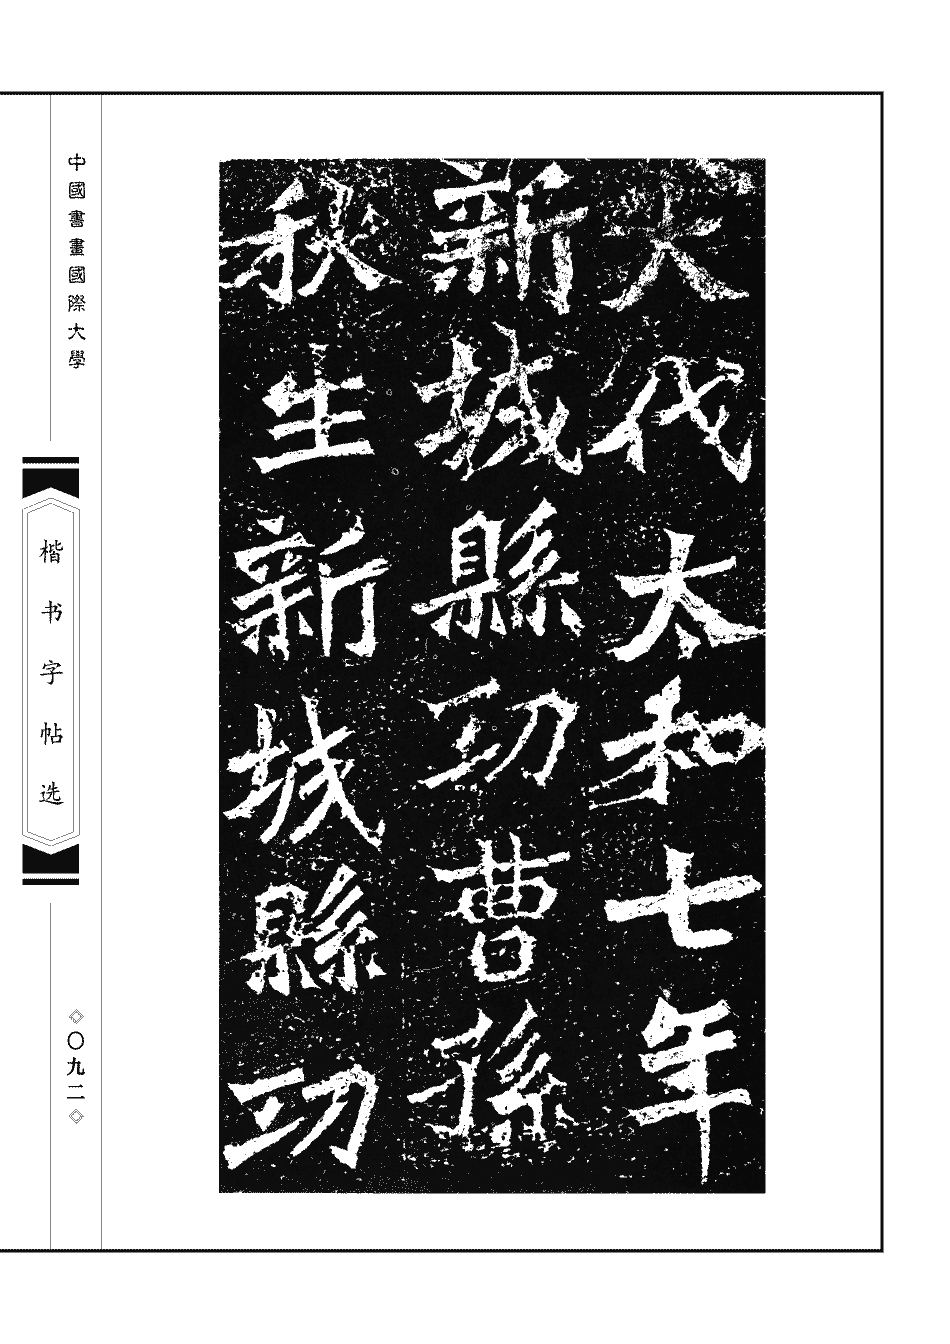 大代太和七年
新城縣功曹孫
秋生新城縣功
中國書畫國際大學
楷书字帖选
〇九二